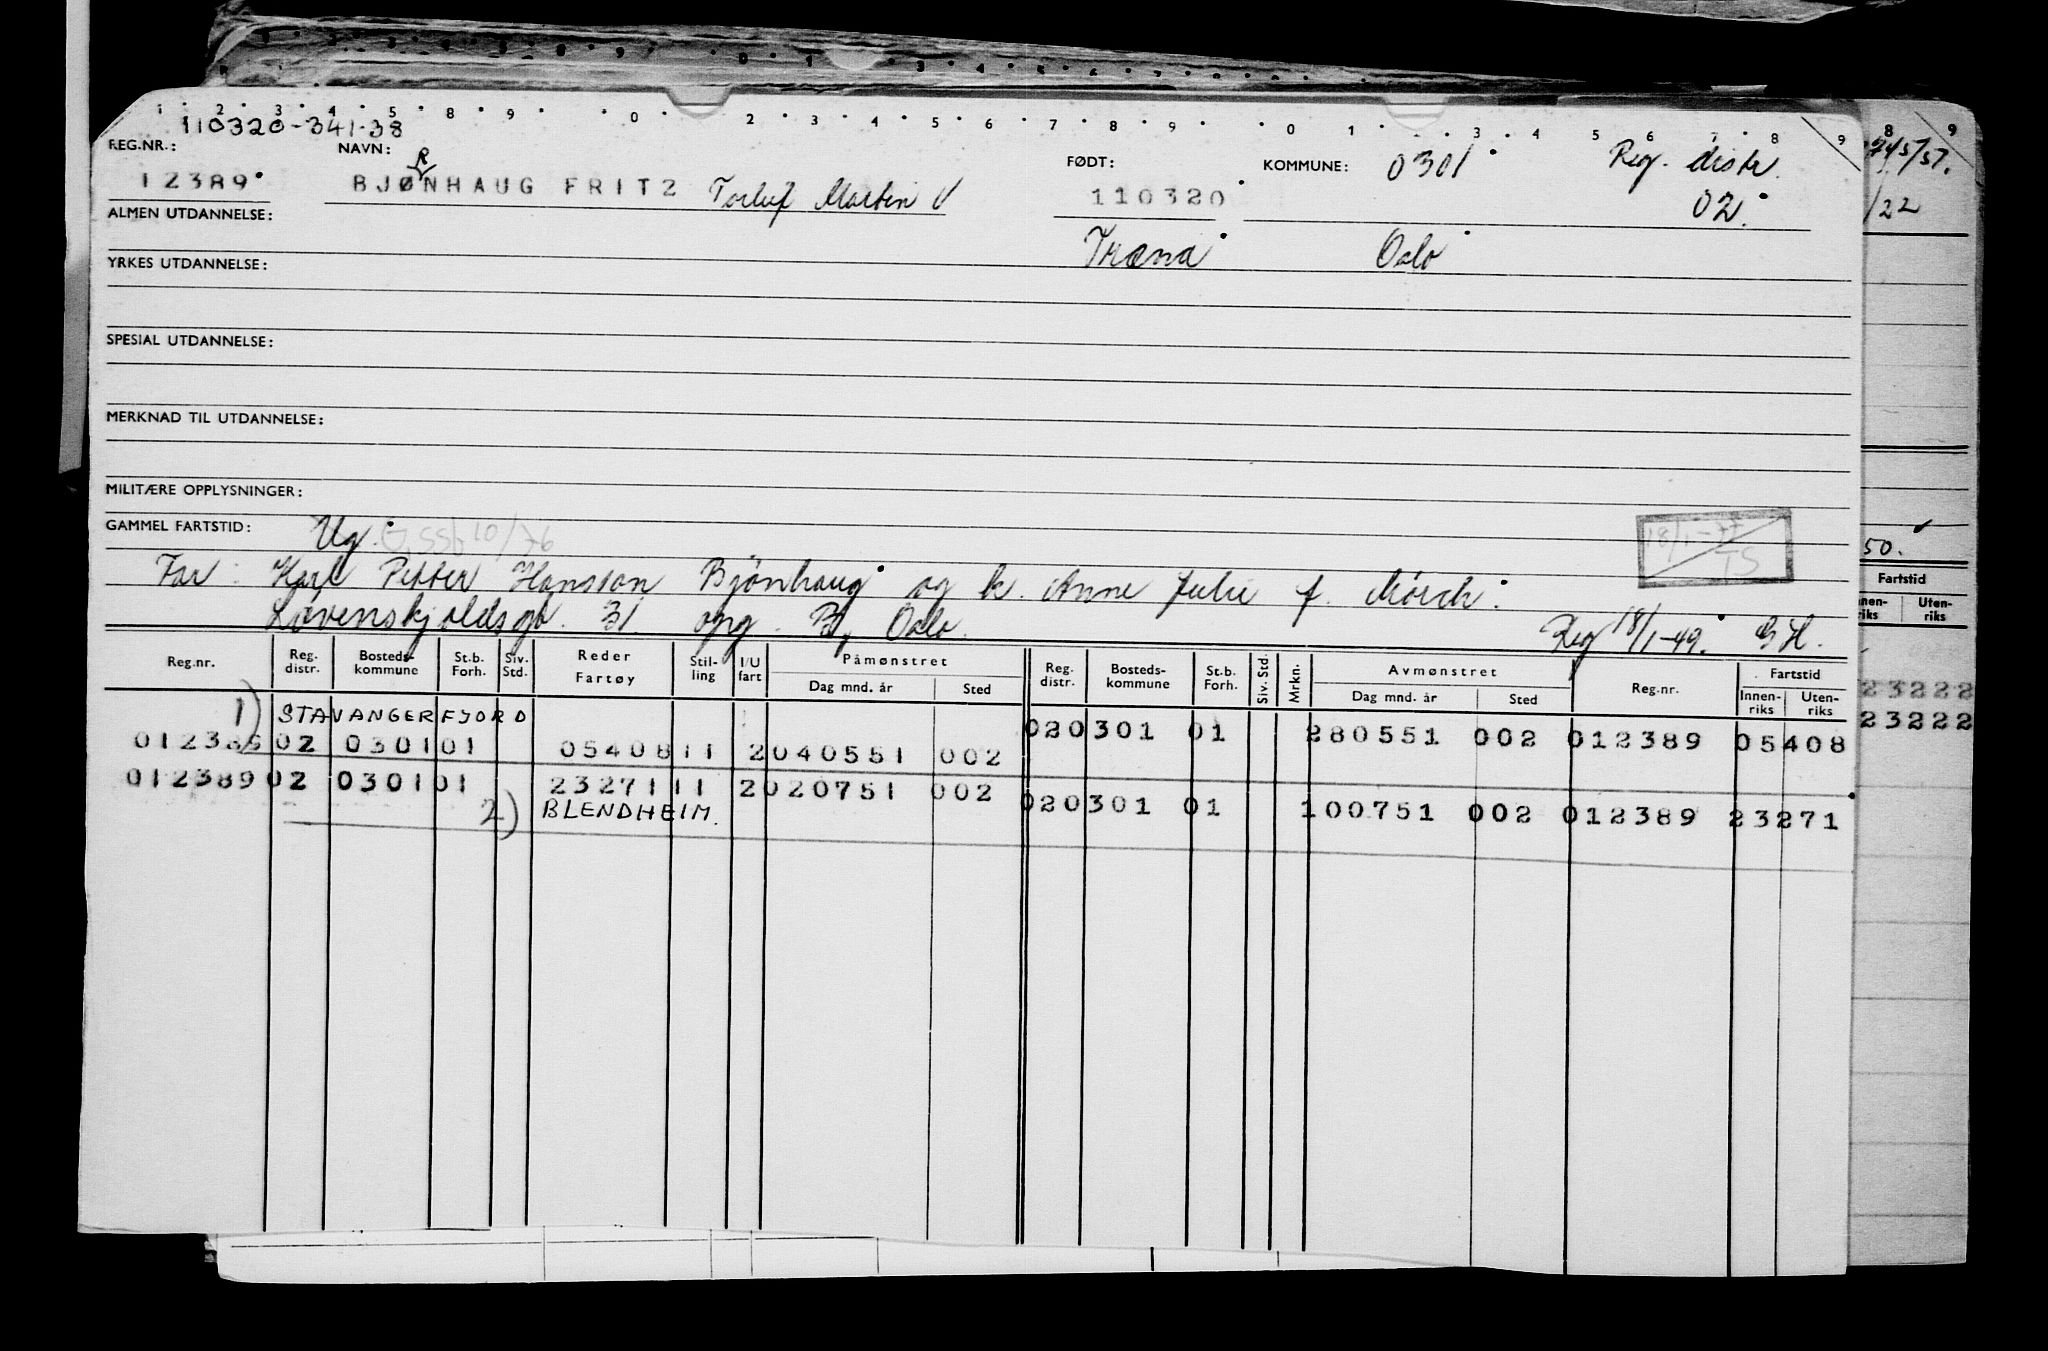 110320-341-38
REG.NR.: NAVN: FØDT: KOMMUNE: 0301 Reg. distr.
12389 BJØNHAUG FRITZ Torluf Marten V 110320 02
R
ALMEN UTDANNELSE:
Træna Oslo
YRKES UTDANNELSE:
SPESIAL UTDANNELSE:
MERKNAD TIL UTDANNELSE:
MILITÆRE OPPLYSNINGER:
GAMMEL FARTSTID: Ug. 10/76
18/1-77
TS
Far: Karl Petter Hansson Bjönhaug og k. Anne Julie f. Mörch.
Løvenskjoldsgt. 31 opg. B, Oslo.
Reg 18/1-49. G H.
Reg.nr. Reg. distr. Bosteds-kommune St.b. Forh. Siv. Std. Reder Fartøy Stil-ling I/U fart Påmønstret Dag mnd. år Sted Reg. distr. Bosteds-kommune St.b. Forh. Siv. Std. Mrkn. Avmønstret Dag mnd. år Sted Reg.nr. Fartstid Innen-riks Uten-riks
1) STAVANGERFJORD
012389 02 0301 01 05408 11 2 040551 002 02 0301 01 280551 002 012389 05408
012389 02 0301 01 23271 11 2 020751 002 02 0301 01 100751 002 012389 23271
2) BLENDHEIM.
50.
Fartstid
Uten-riks
23222
23222